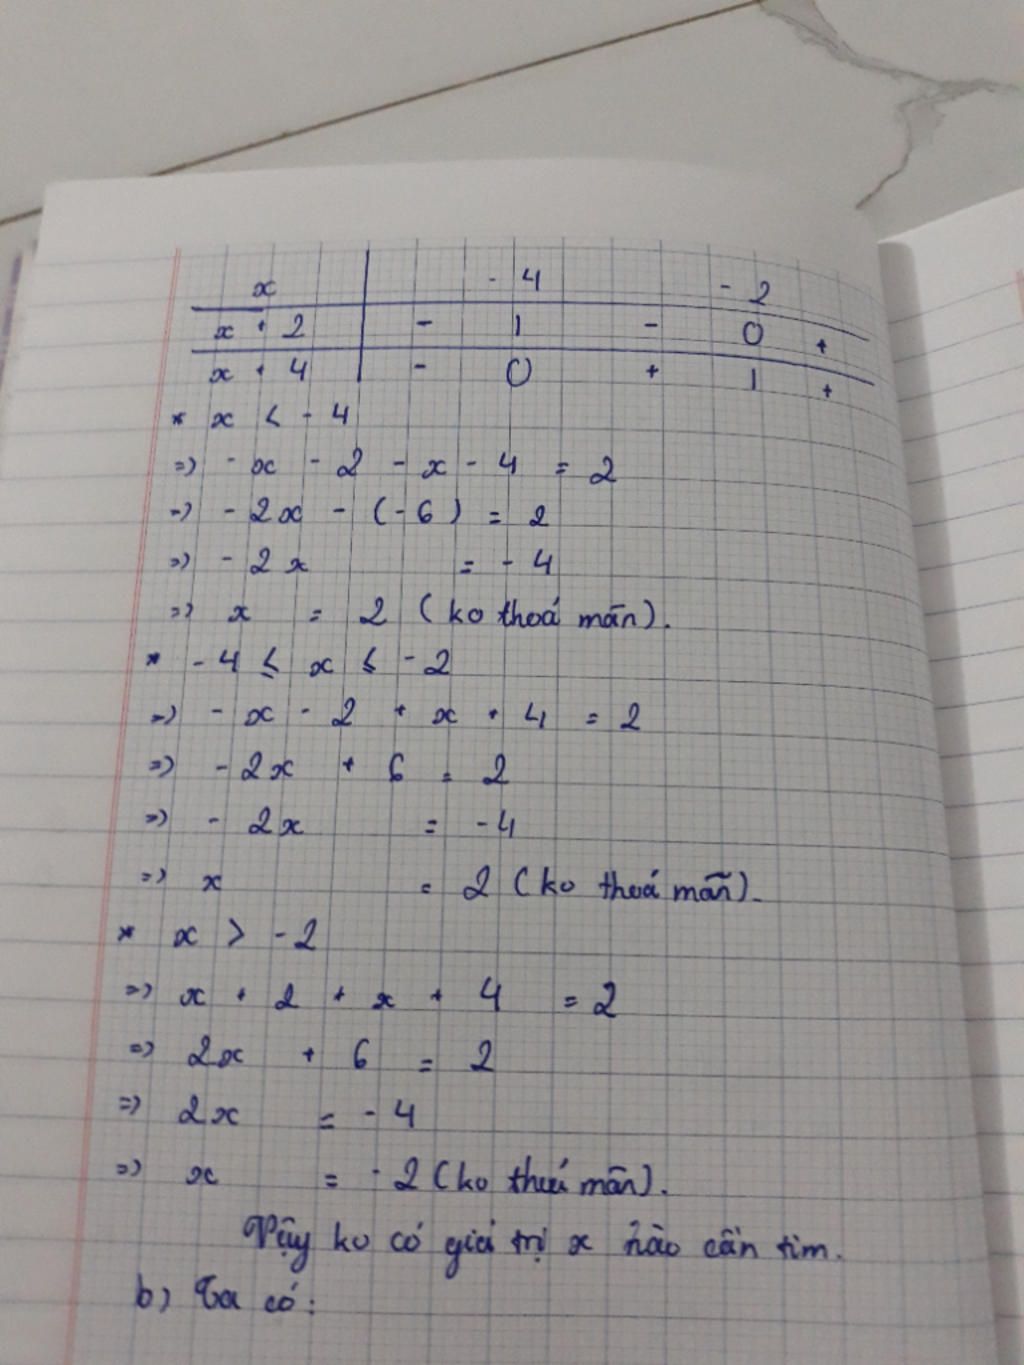 x - 4 - 2
x + 2 - | - 0 +
x + 4 - 0 + | +
* x < - 4
=> - x - 2 - x - 4 = 2
=> - 2x - (-6) = 2
=> - 2x = - 4
=> x = 2 (ko thoả mãn).
* - 4 ≤ x ≤ - 2
=> - x - 2 + x + 4 = 2
=> - 2x + 6 = 2
=> - 2x = - 4
=> x = 2 (ko thoả mãn).
* x > - 2
=> x + 2 + x + 4 = 2
=> 2x + 6 = 2
=> 2x = - 4
=> x = - 2 (ko thoả mãn).
Vậy ko có giá trị x nào cần tìm.
b) Ta có: